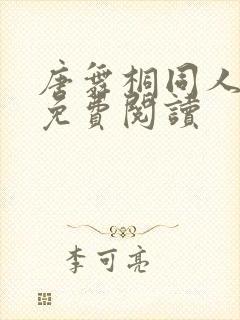 唐舞桐同人
免費閱讀
李可亮